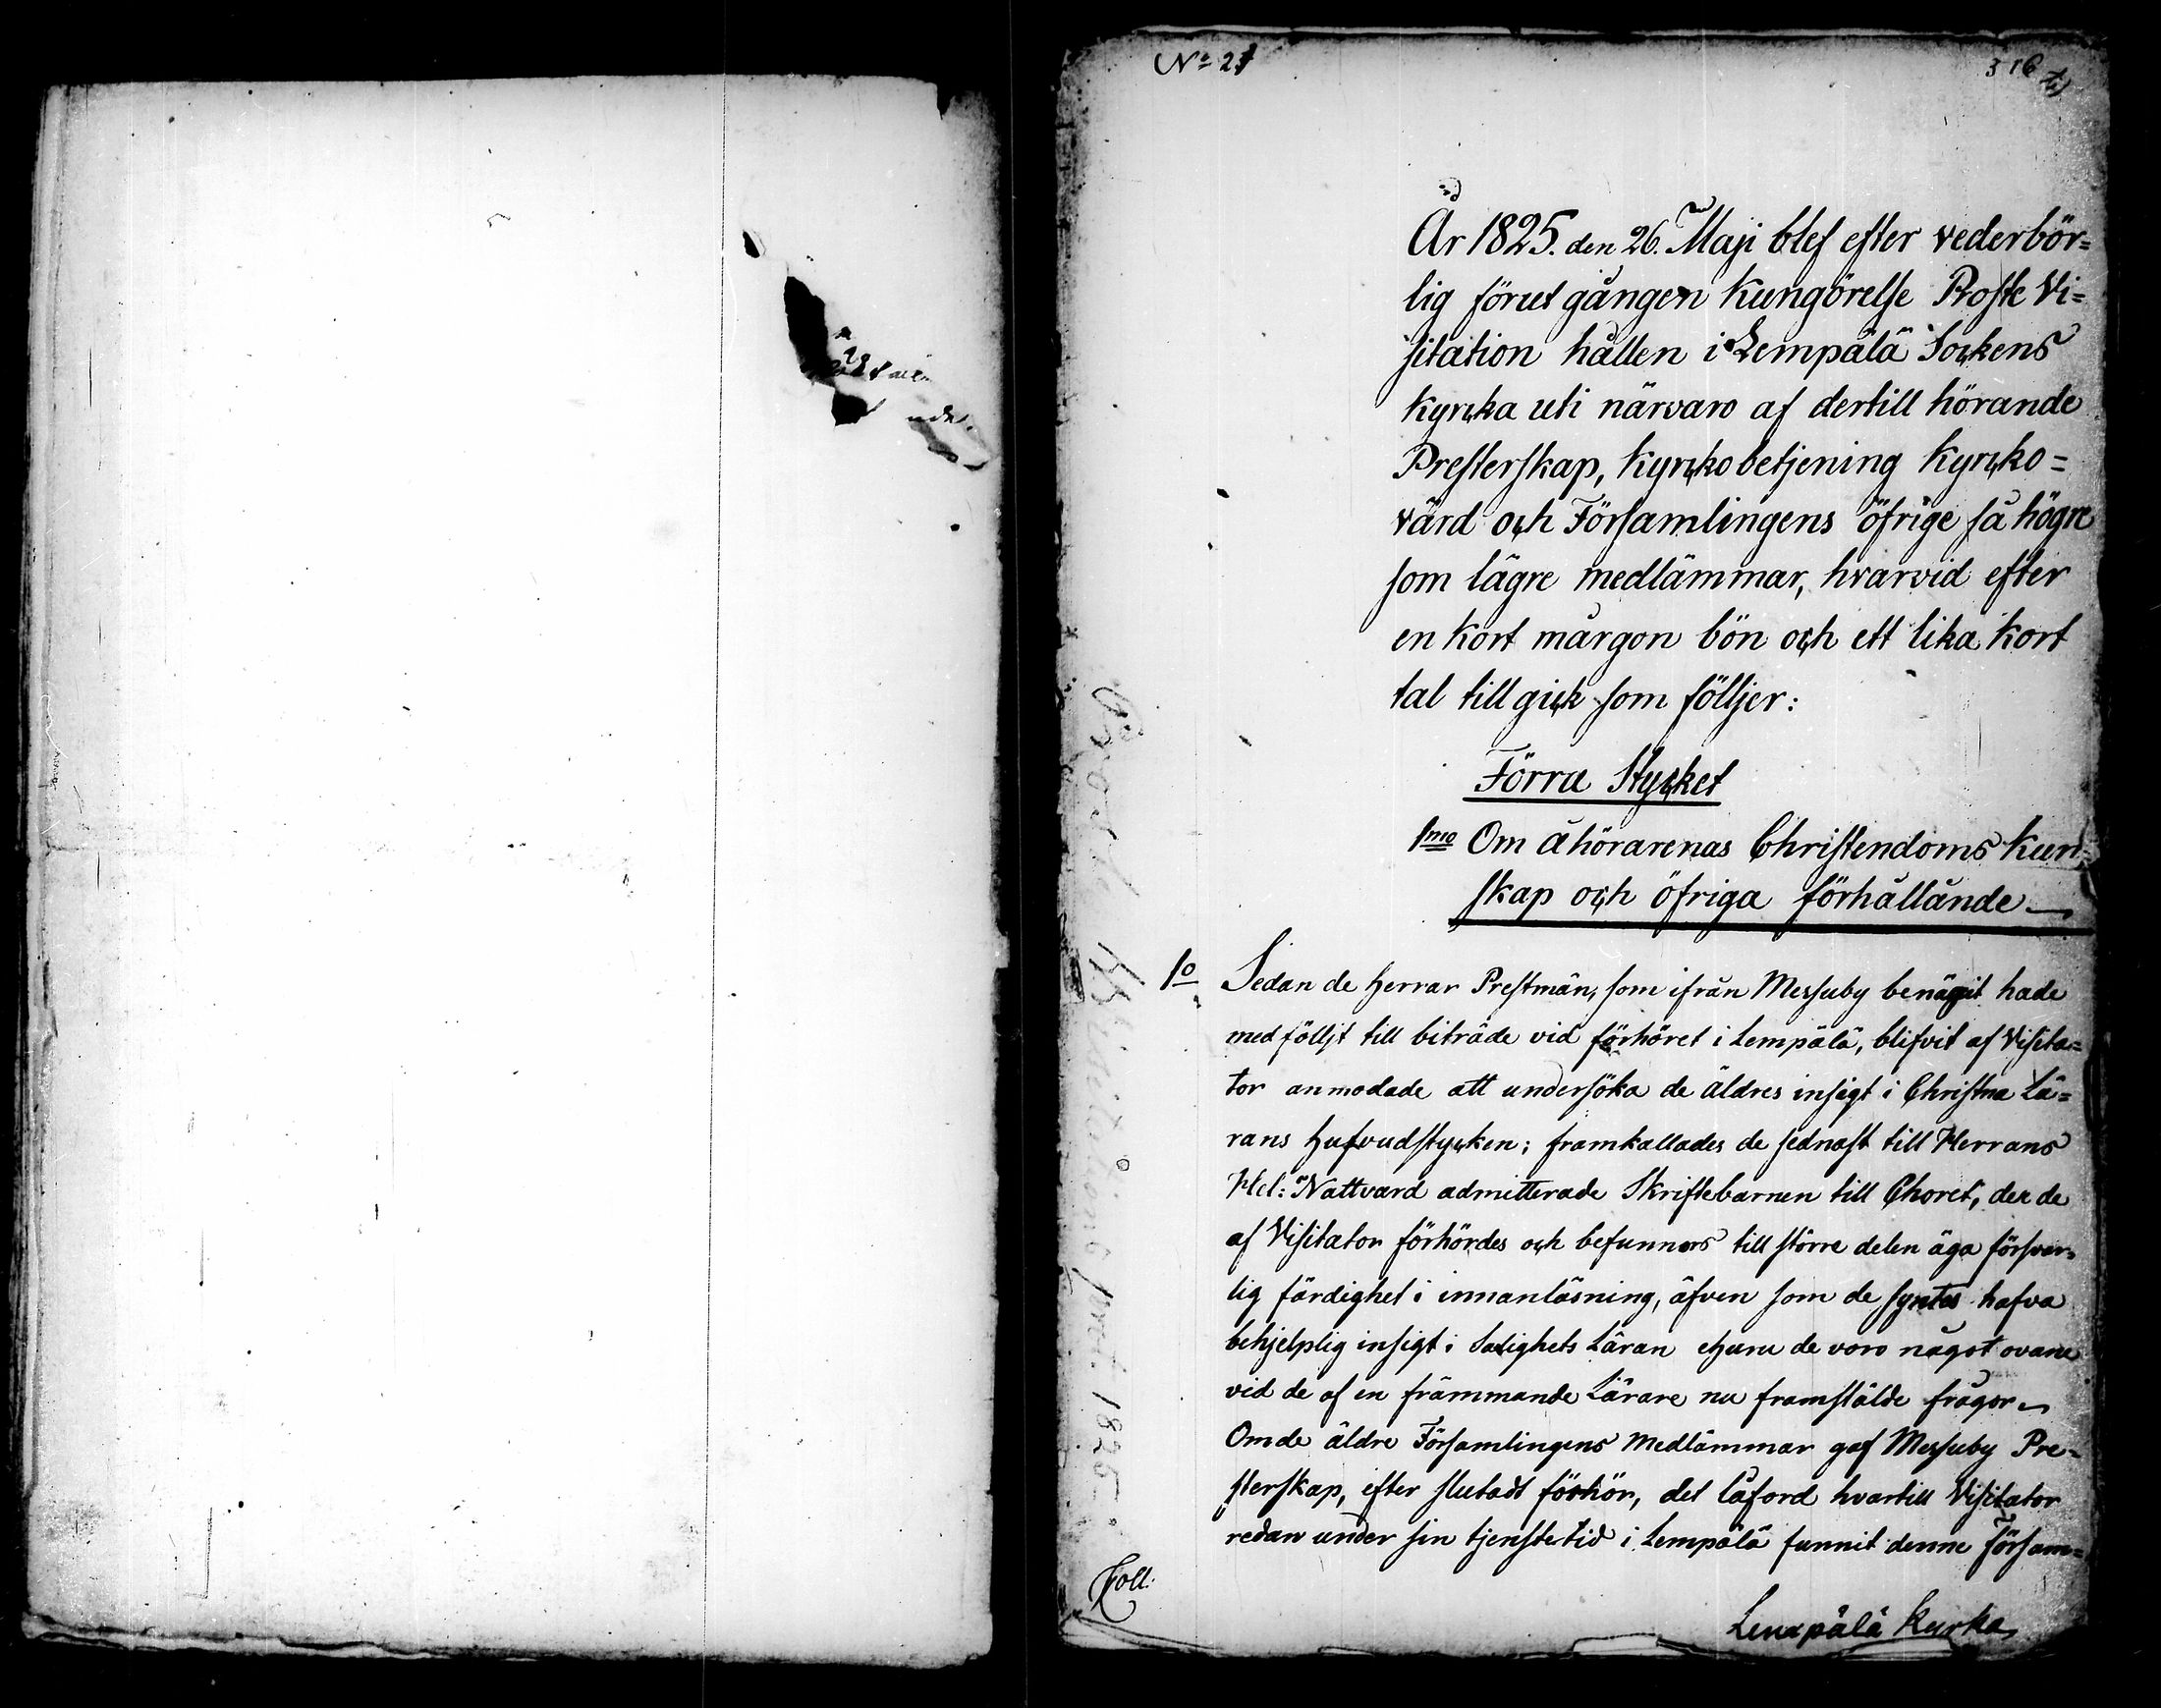 No 27
316
År 1825. den 26. Maji blef efter vederbör=
lig förut gången Kungörelse Proste Vi=
sitation hållen i Lempälä Sockens
Kyrcka uti närvaro af dertill hörande
Presterskap, Kyrckobetjening Kyrcko=
värd och Församlingens öfrige så högre
som lägre medlämmar, hvarvid efter
en Kort mårgon bön och ett lika Kort
tal till gick som fölljer:
Förra Stycket
1mo Om åhörarenas Christendoms Kun=
skap och öfriga förhållånde
1o Sedan de Herrar Prestmän, som ifrån Messuby benägit hade
med fölljt till biträde vid förhöret i Lempälä, blifvit af Visita=
tor anmodade att undersöka de äldres insigt i Christna Lä=
rans Hufvudstycken; framkallades de sednast till Herrans
Hel: Nattvard admitterade Skriftebarnen till Choret, der de
af Visitator förhördes och befunnos till större delen äga försvar=
lig färdighet i innanläsning, äfven som de syntes hafva
behjelplig insigt i Salighets Läran ehuru de voro något ovane
vid de af en främmande Lärare nu framstälde frågor
Om de äldre Församlingens Medlämmar gaf Messuby Pre=
sterskap, efter slutadt förhör, det låford hvartill Visitator
redan under sin tjenstetid i Lempälä funnit denne Försam=
Coll.
Lempälä Kyrka
Prosts Visitations prot. 1825.